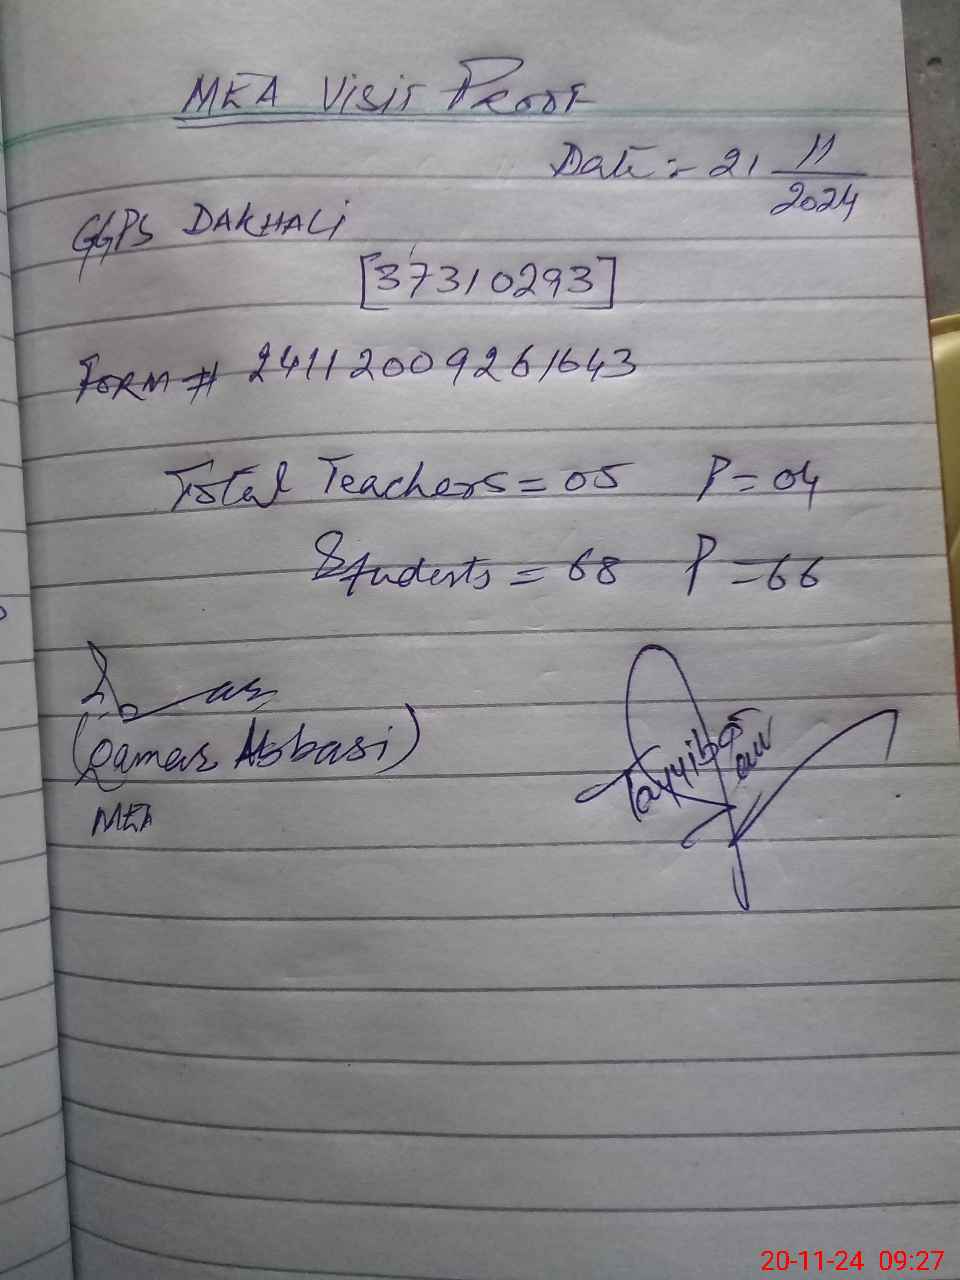 MEA Visit Proof
Date :- 21 11/2024
GGPS DAKHALI
[37310293]
FORM # 24112009261643
Total Teachers = 05 P = 04
Students = 68 P = 66
(Qamar Abbasi)
MEA
Tayyiba
20-11-24 09:27